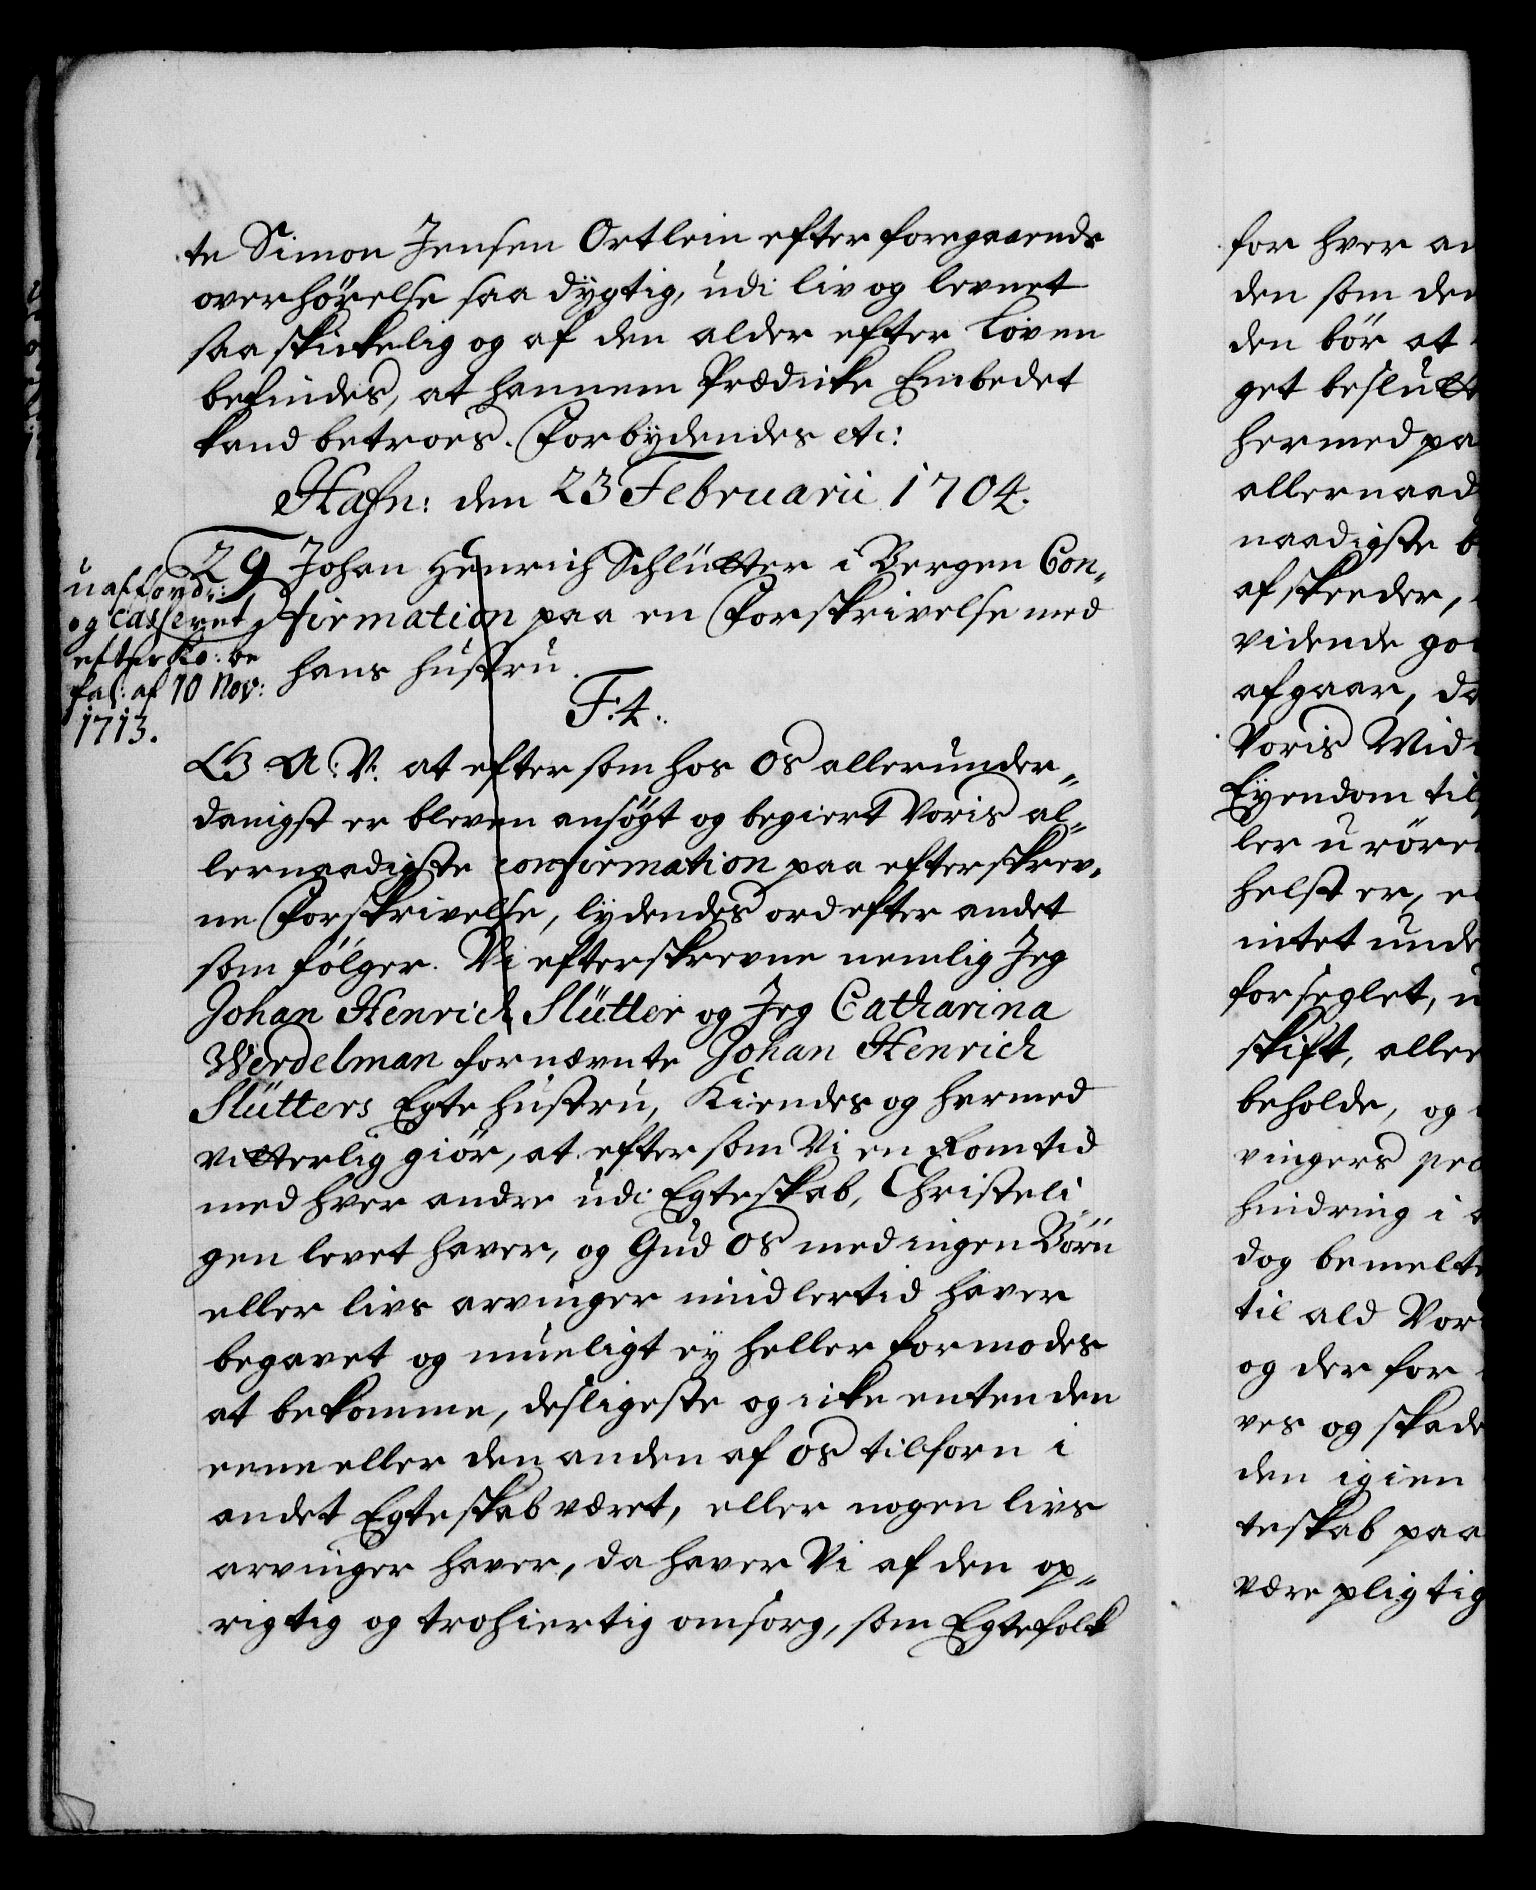 te Simon Jensen Ortlein efter foregaaende
overhørelse saa dygtig, udi liv og levnet
saa skickelig og af den alder efter Loven
befindes, at hannem Prædicke Embedet
kand betroes. Forbydendes etc:
Hafn: den 23 Februarii 1704.
29 Johan Henrich Schlütter i Bergen Con-
firmation paa en Forskrivelse med
hans hustru.
uafford:
og Casseret
efter Ko: be
fal: af 10 Nov:
1713.
F: 4.
G A: V. at eftersom hos Os allerunder-
danigst er bleven ansøgt og begiert Voris al-
lernaadigste confirmation paa efterskrev-
ne Forskrivelse, lydendes ord efter andet
som følger. Vi efterskrevne nemlig Jeg
Johan Henrich Slütter og Jeg Catharina
Werdelman fornævnte Johan Henrich
Slütters Egte hustru, Kiendes og hermed
vitterlig giør, at eftersom Vi en Romtid
med hver andre udi Egteskab, Christeli
gen levet haver, og Gud Os med ingen Børn
eller livs arvinger imidlertid haver
begavet og mueligt ey heller formodes
at bekomme, desligeste og icke enten den
eene eller den anden af Os tilforn i
andet Egteskab været, eller nogen livs
arvinger haver, da haver Vi af den op-
rigtig og trohiertig omsorg, som Egtefolk
for hver an
den som den
den bør at
get beslutt
hermed pa
allernaad
naadigste b
afskeeder,
vidende go
afgaar, da
Voris Wid
Eyendom til
ler u røre
helst er, e
intet unde
forseglet, u
skift, aller
beholde, og
vingers præ
hindring i
dog bemelte
til ald Vor
og der for
ves og skade
den igien
teskab paa
være pligtig